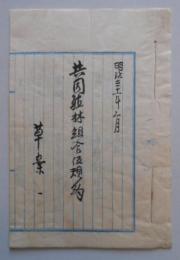 明治三十一年二月
共同殖林組合仮規約
草案一